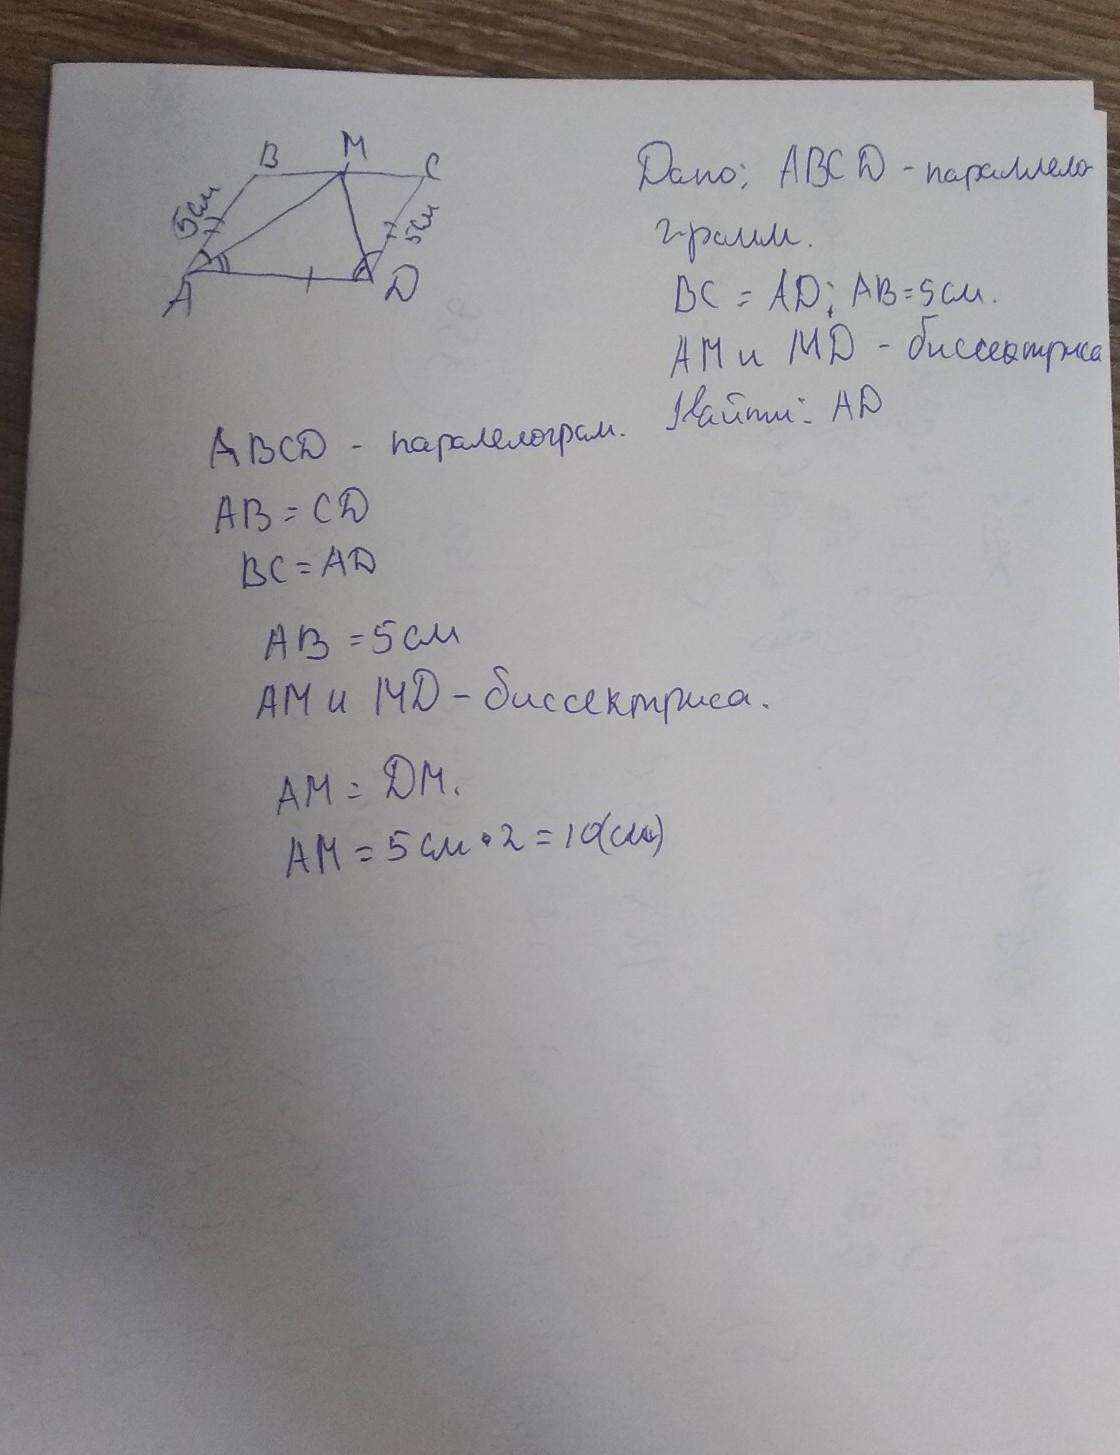 B M C
5см 5см
A D
Дано: ABCD - параллело
грамм.
BC = AD; AB = 5см.
AM и MD - биссектриса
Найти: AD
ABCD - паралелограм.
AB = CD
BC = AD
AB = 5см
AM и MD - биссектриса.
AM = DM.
AM = 5см • 2 = 10(см)